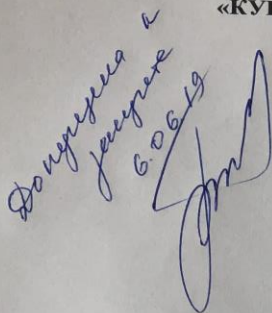 «КУ
Допущена к
защите
6.06.19